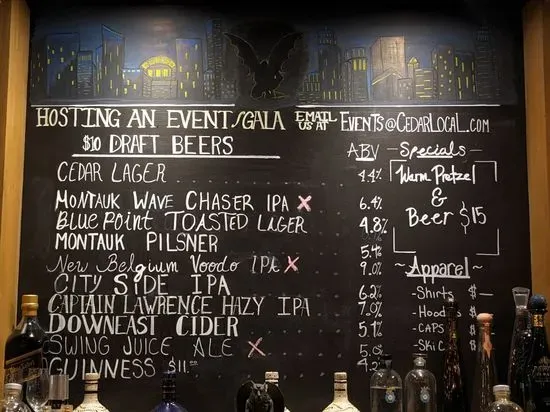 HOSTING AN EVENT/GALA EMAIL US AT EVENTS@CEDARLOCAL.COM
$10 DRAFT BEERS
ABV
CEDAR LAGER 4.4%
MONTAUK WAVE CHASER IPA X 6.4%
BLUE POINT TOASTED LAGER 4.8%
MONTAUK PILSNER 5.4%
New Belgium Voodo IPA X 9.0%
CITY SIDE IPA 6.2%
CAPTAIN LAWRENCE HAZY IPA 7.0%
DOWNEAST CIDER 5.1%
SWING JUICE ALE X 5.0
GUINNESS $11.00 4.2
-Specials-
Warm Pretzel
&
Beer $15
~Apparel~
-Shirts $
-Hood
-CAPS
-Ski C